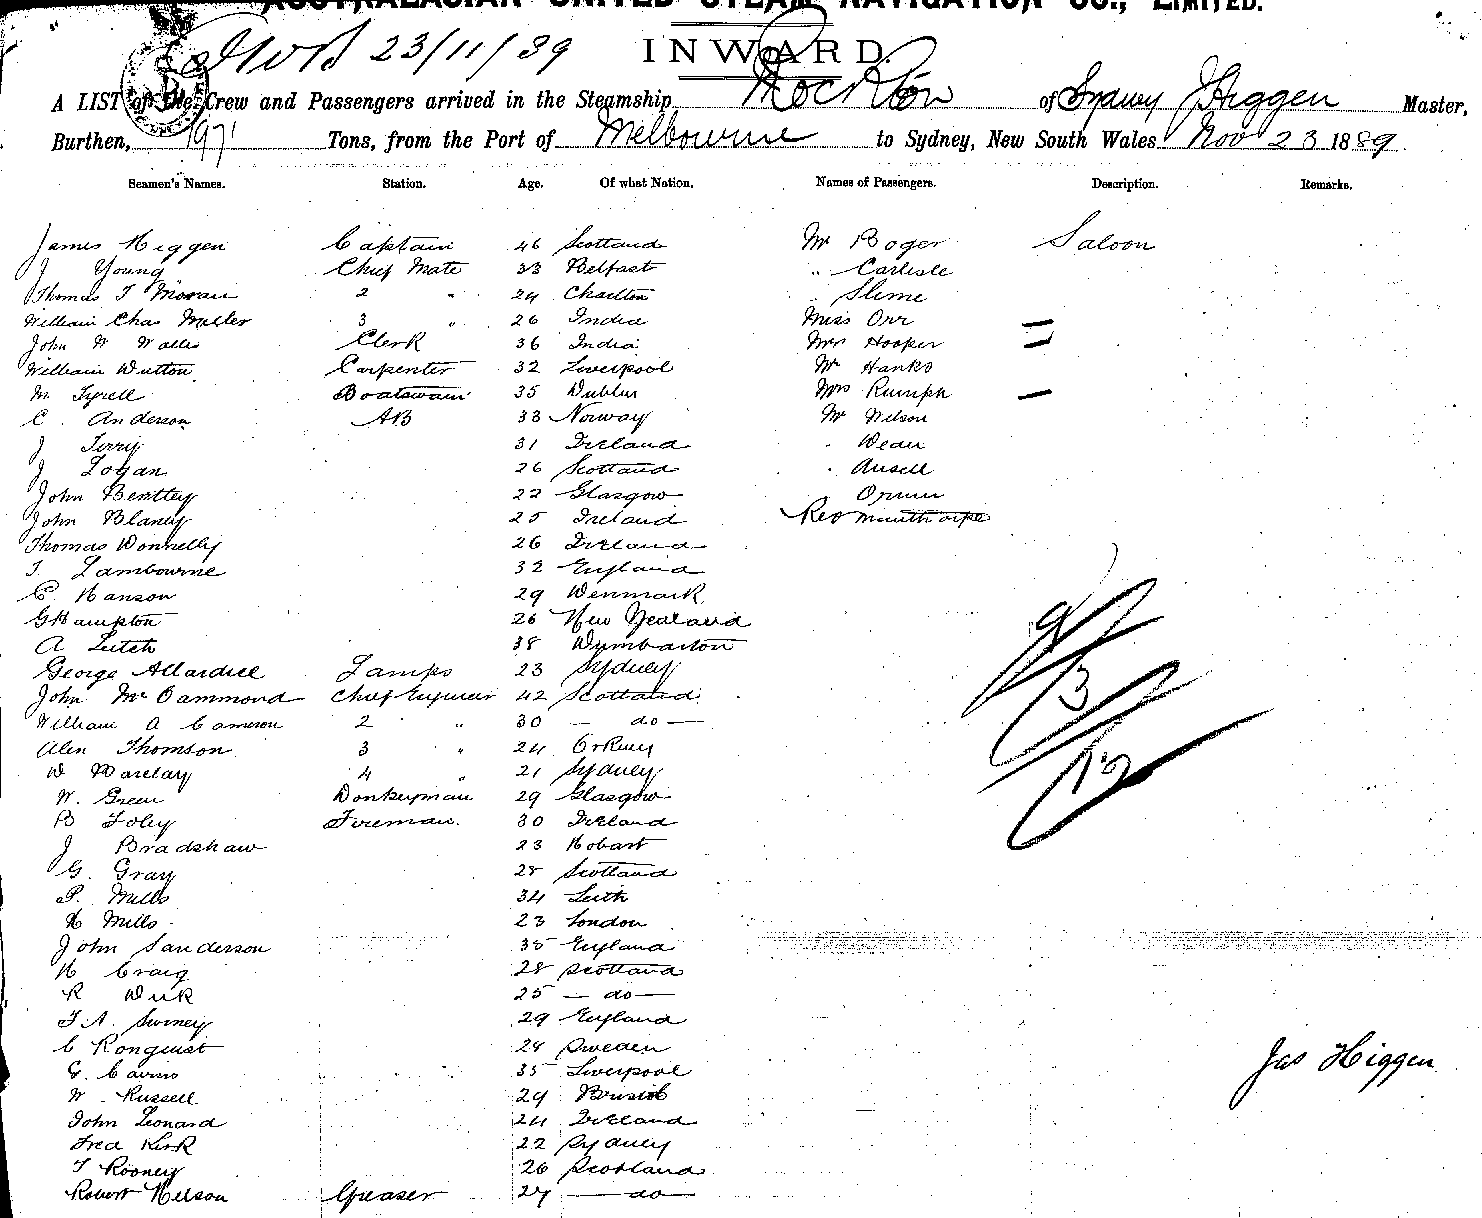 AUSTRALASIAN UNITED STEAM NAVIGATION CO., LIMITED.
23/11/89
INWARD.
A LIST of the Crew and Passengers arrived in the Steamship Rockton of Sydney J Higgen Master,
Burthen, 1971 Tons, from the Port of Melbourne to Sydney, New South Wales Nov 23 1889
Seamen's Names. Station. Age. Of what Nation. Names of Passengers. Description. Remarks.
James Higgen Captain 46 Scotland Mr Boger Saloon
J Young Chief Mate 33 Belfast " Carlisle
Thomas T Moran 2 " 24 Charlton Slime
William Chas Miller 3 " 26 India Miss Orr
John W Wallis Clerk 36 India Mrs Hooper
William Dutton Carpenter 32 Liverpool Mr Hanks
M Tyrell Boatswain 35 Dublin Mrs Rumph
C. Anderson AB 33 Norway Mr Nelson
J Terry 31 Ireland
J Logan 26 Scotland Ansell
John Bentley 22 Glasgow
John Blaney 25 Ireland Rev
Thomas Donnelly 26 Ireland
T. Lambourne 32 England
C. Hanson 29 Denmark
G Hampton 26 New Zealand
A Leitch 38 Dumbarton
George Allardice Lamps 23 Sydney
John Mc Cammond Chief Engineer 42 Scotland
William A Cameron 2 " 30 — do —
Alen Thomson 3 " 24 Orkney
D Barclay 4 " 21 Sydney
W. Green Donkeyman 29 Glasgow
B Foley Fireman. 30 Ireland
J Bradshaw 23 Hobart
G. Gray 28 Scotland
P. Mills 34 Leith
H Mills 23 London
John Sanderson 35 England
H Craig 28 Scotland
R Dick 25 — do —
England
C Ronquist 28 Sweden
G. Cairns 35 Liverpool
W. Russell 29 Bristol
John Leonard 24 Ireland
Fred Kirk 22 Sydney
T Rooney 26 Scotland
Robert Nelson Greaser 27 — do —
9
3
12
Jas Higgen